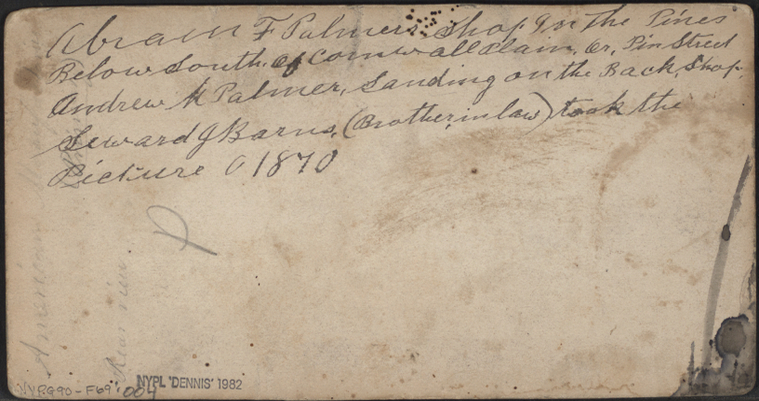 Abram F Palmers Shop In The Pines
Below South. of Cornwall Plain, Or, Pin Street
Andrew M Palmer, Sanding on the Back, Shop,
Seward J Barns, (Brother in law) took the
Picture 1870
Rear view
NYPL 'DENNIS' 1982